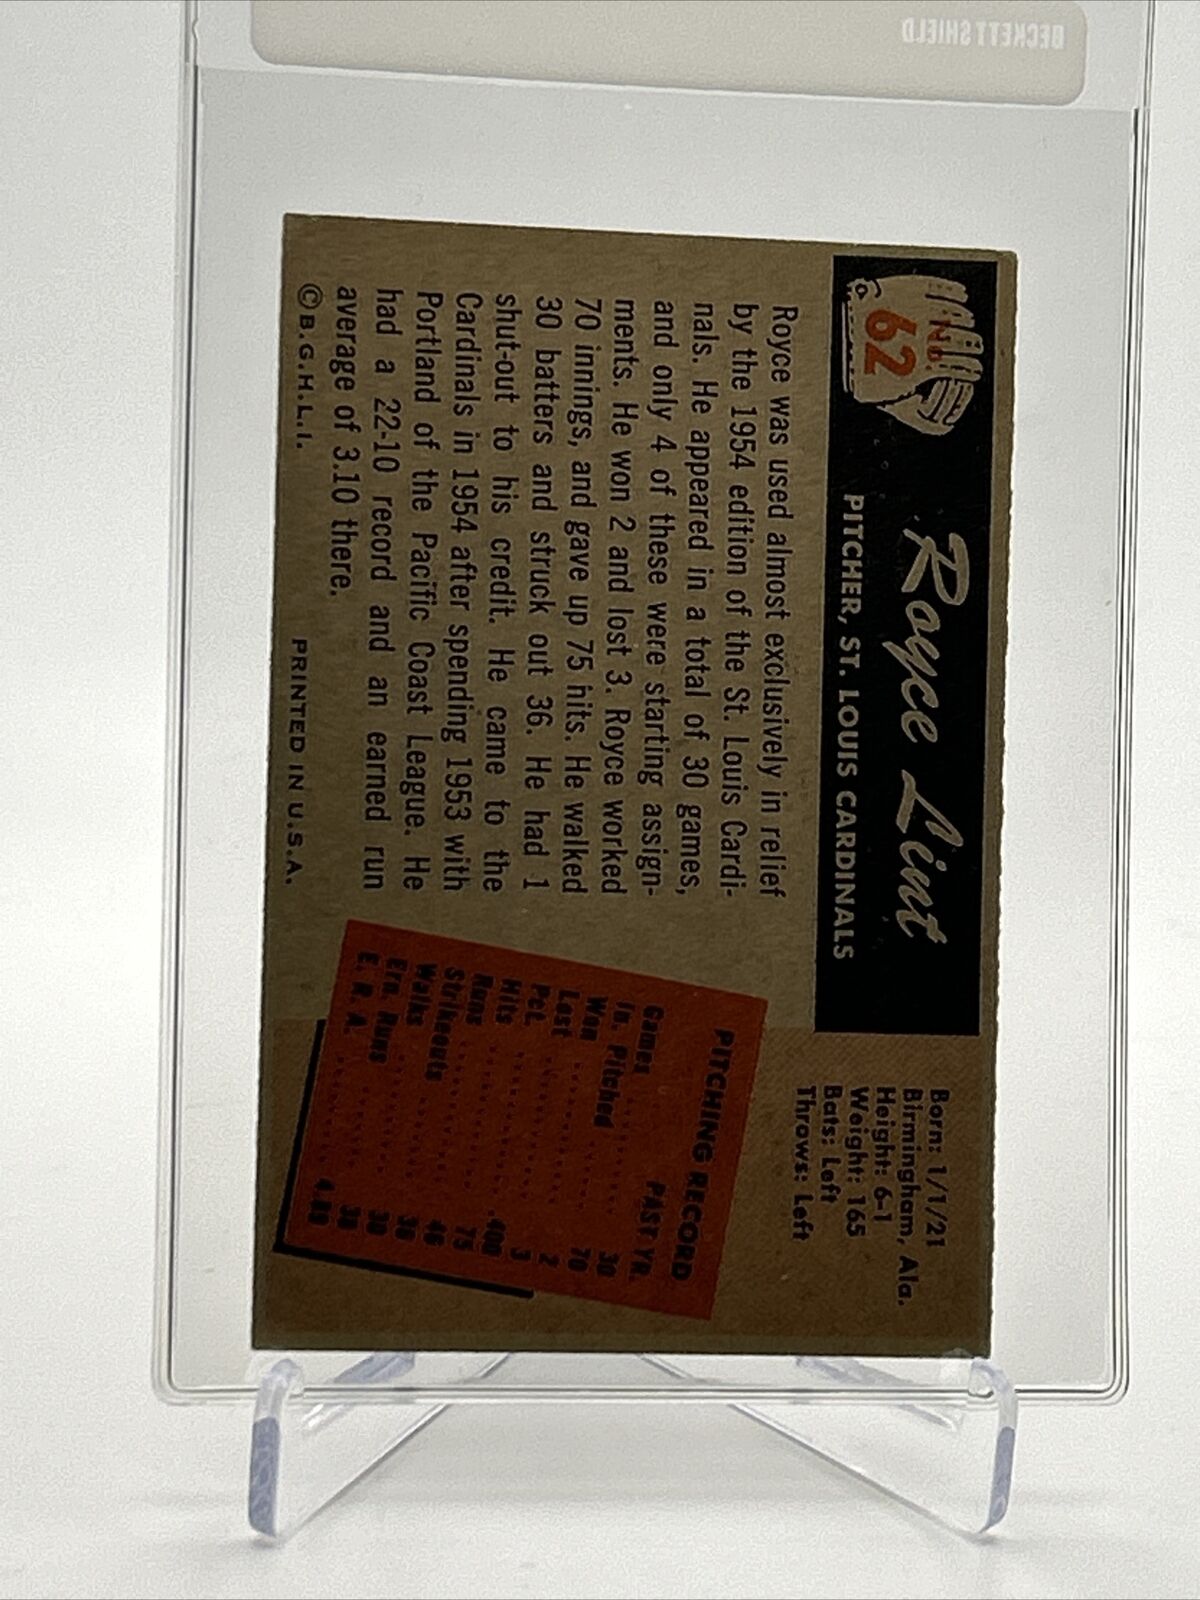 BECKETT SHIELD
NO.
62
Royce Lint
PITCHER, ST. LOUIS CARDINALS
Born: 1/1/21
Birmingham, Ala.
Height: 6-1
Weight: 165
Bats: Left
Throws: Left
Royce was used almost exclusively in relief
by the 1954 edition of the St. Louis Cardi-
nals. He appeared in a total of 30 games,
and only 4 of these were starting assign-
ments. He won 2 and lost 3. Royce worked
70 innings, and gave up 75 hits. He walked
30 batters and struck out 36. He had 1
shut-out to his credit. He came to the
Cardinals in 1954 after spending 1953 with
Portland of the Pacific Coast League. He
had a 22-10 record and an earned run
average of 3.10 there.
©B.G.H.L.I.
PRINTED IN U.S.A.
PITCHING RECORD
PAST YR.
Games 30
In. Pitched 70
Won 2
Lost 3
Pct. .400
Hits 75
Runs 46
Strikeouts 36
Walks 30
Ern. Runs 38
E. R. A.